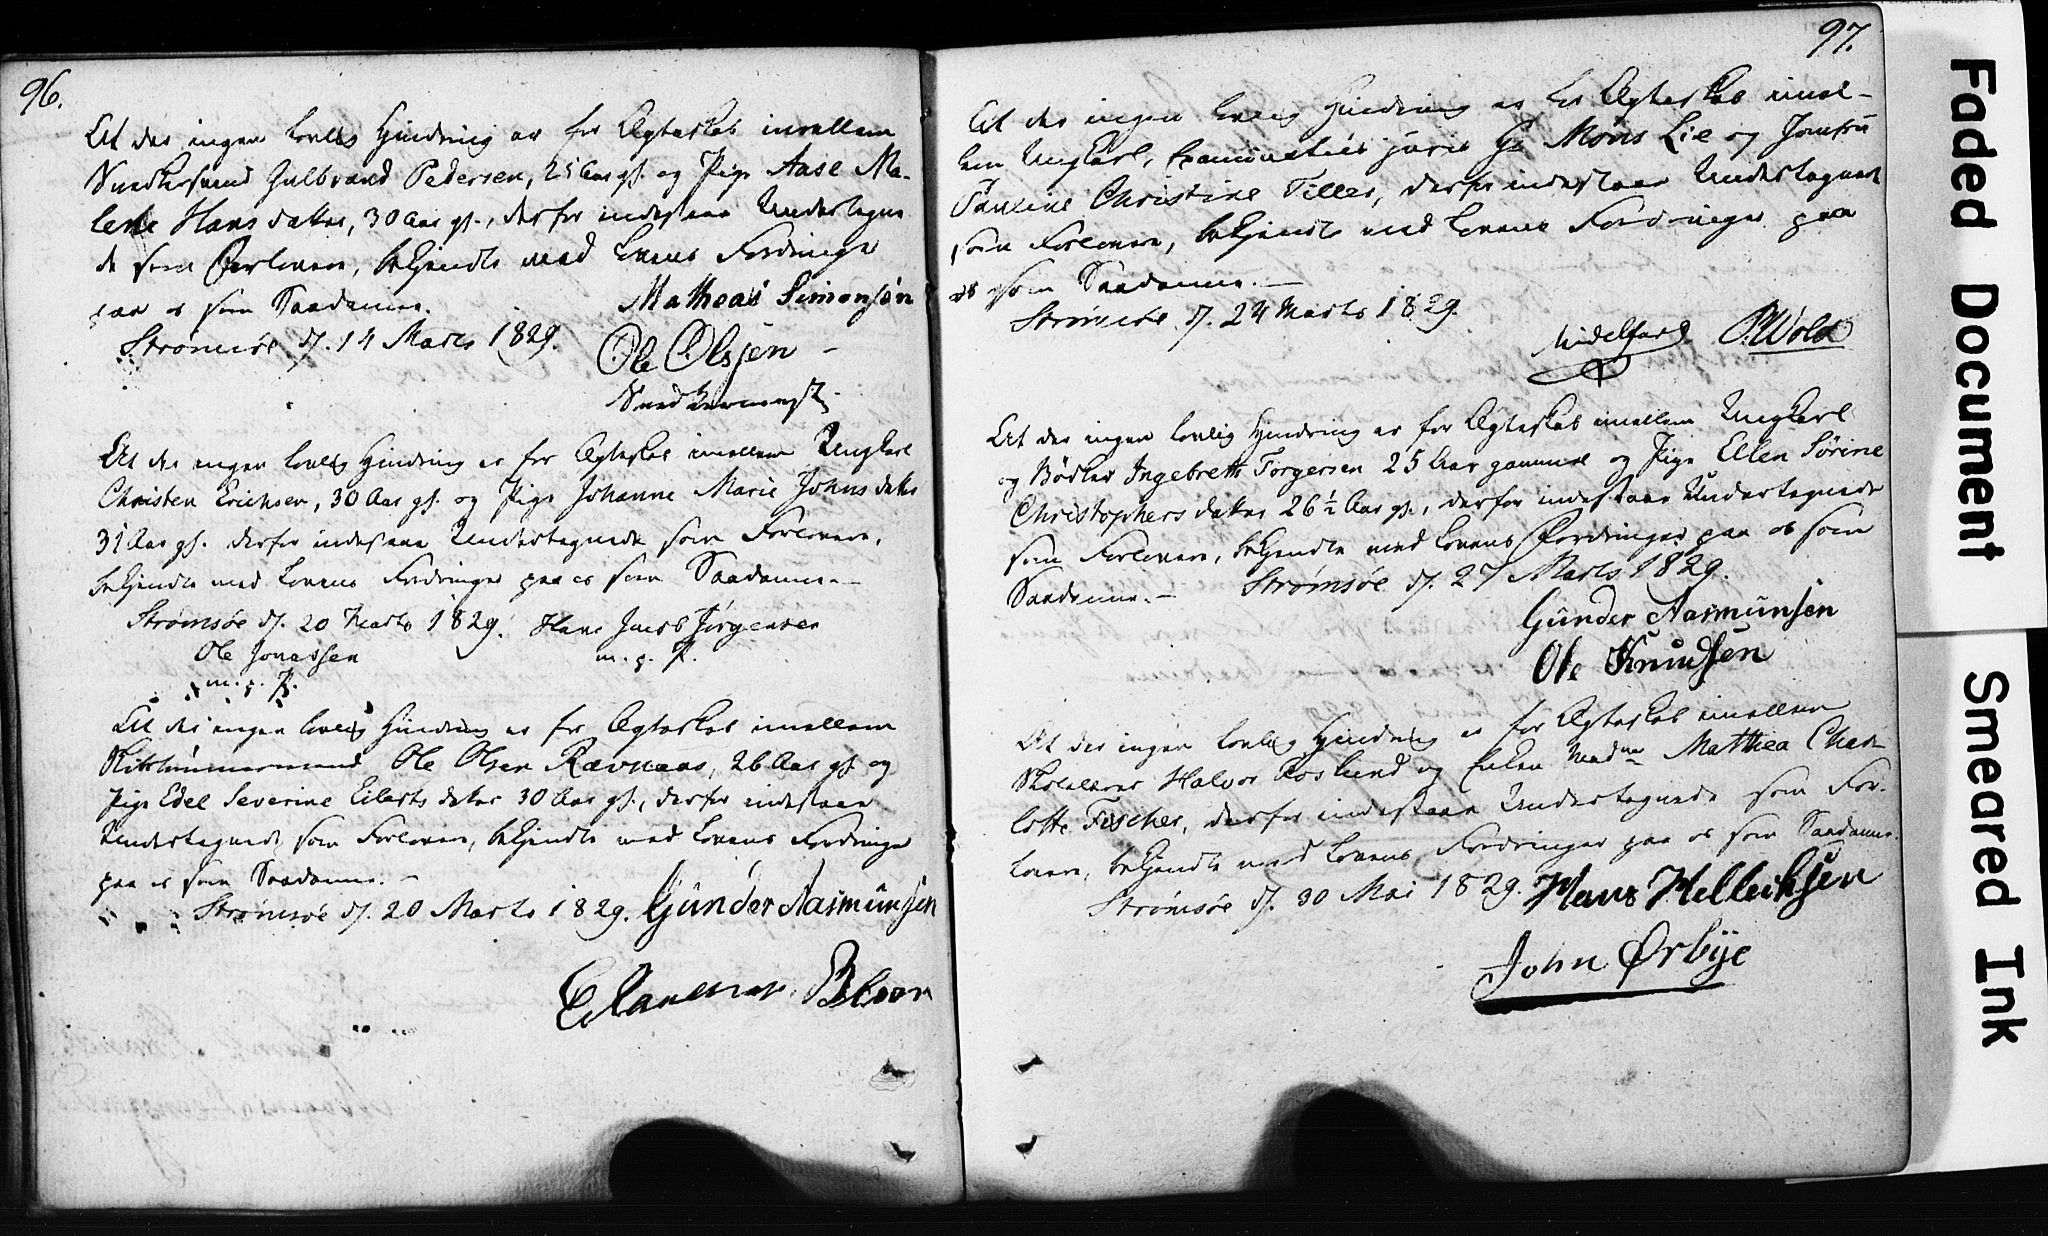 96.
At der ingen lovlig Hindring er for Ægteskab imellem
Snedkersvend Gulbrand Pedersen, 25 Aar gl. og Pige Aase Ma-
lene Hansdatter, 30 Aar gl., derfor indestaae Undertegne
de som Forlovere, bekjendte med Lovens Fordringer
paa os som Saadanne.
Strømsøe d. 14 Marts 1829.
Matheas Simonsen
Ole Olsen
At der ingen lovlig Hindring er for Ægteskab imellem Ungkarl
Christen Erichsen, 30 Aar gl. og Pige Johanne Marie Johnsdatter
31 Aar gl. derfor indestaae Undertegnede som Forlovere,
bekjendte med Lovens Fordringer paa os som Saadanne.-
Strømsøe d. 20 Marts 1829. Hans Jacob Jørgensen
Ole Jonassen m. p. P.
m. p. P.
At der ingen lovlig Hindring er for Ægteskab imellem
Skibstømmermand Ole Olsen Ravnaas, 26 Aar gl. og
Pige Edel Severine Eilertsdatter 30 Aar gl., derfor indestaae
Undertegnede som Forlovere, bekjendte med Lovens Fordringer
paa os som Saadanne.-
Strømsøe d. 20 Marts 1829. Gunder Aasmundsen
97.
At der ingen lovlig Hindring er for Ægteskab imel-
lem Ungkarl, Examinatus juris Hr Mons Lie og Jomfru
Pauline Christine Tiller, derfor indestaae Undertegnede
som Forlovere, bekjendte med Lovens Fordringer paa
os som Saadanne.-
Strømsøe d. 24 Marts 1829.
Midelfart P. Wold
At der ingen lovlig Hindring er for Ægteskab imellem Ungkarl
og Bødker Ingebreth Torgersen 25 Aar gammel og Pige Ellen Sørine
Christophersdatter 26 1/2 Aar gl., derfor indestaae Undertegnede
som Forlovere, bekjendte med Lovens Fordringer paa os som
Saadanne.- Strømsøe d. 27 Marts 1829.
Gunder Aasmundsen
Ole Knudsen
At der ingen lovlig Hindring er for Ægteskab imellem
Halvor Roslund og Enken Madme Matthea Char-
lotte Fischer, derfor indestaae Undertegnede som For-
lovere, bekjendte med Lovens Fordringer paa os som Saadanne.
Strømsøe d. 30 Mai 1829. Hans Helleichsen
John Ørbye
Faded Document
Smeared Ink